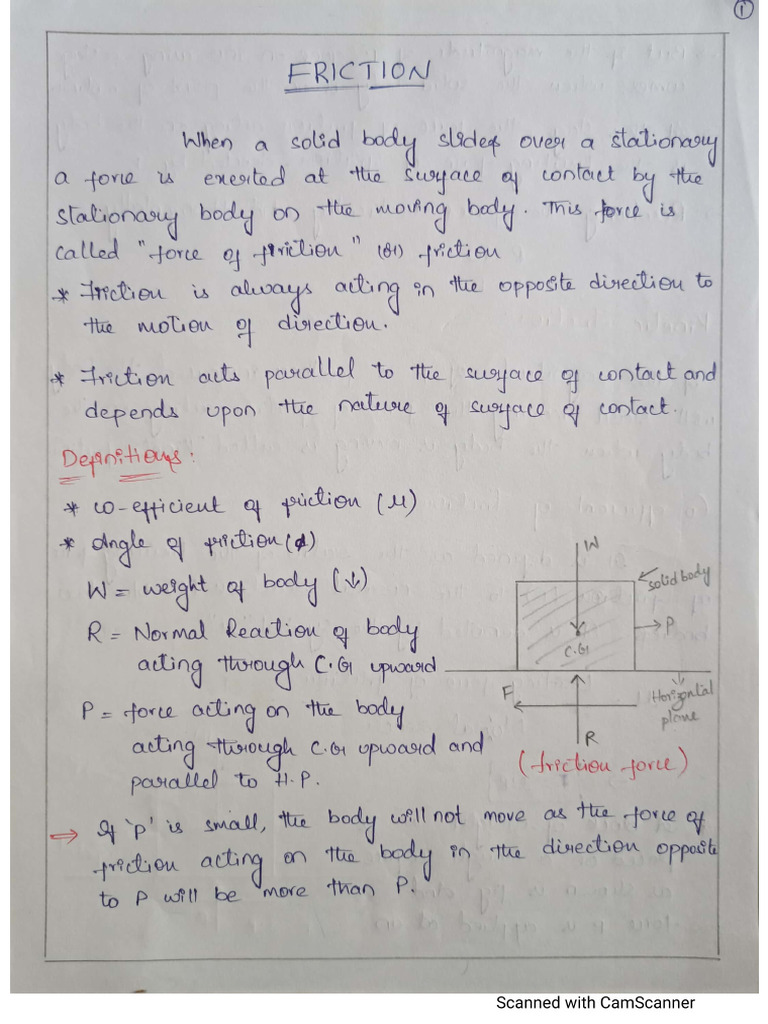 1
FRICTION
When a solid body slides over a stationary
a force is exerted at the surface of contact by the
stationary body on the moving body. This force is
called "force of friction" (or) friction
* Friction is always acting in the opposite direction to
the motion of direction.
* Friction acts parallel to the surface of contact and
depends upon the nature of surface of contact.
Definitions:
* co-efficient of friction (μ)
* Angle of friction (ϕ)
W = weight of body (↓)
R = Normal Reaction of body
acting through C.G upward
P = force acting on the body
acting through C.G upward and
parallel to H.P.
W
solid body
P
C.G
F
Horizontal
plane
R
(friction force)
⇒ If 'P' is small, the body will not move as the force of
friction acting on the body in the direction opposite
to P will be more than P.
Scanned with CamScanner